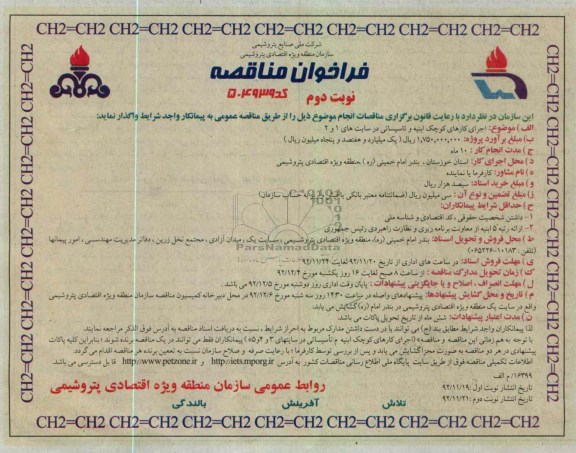 CH2=CH2 CH2=CH2 CH2=CH2 CH2=CH2 CH2=CH2 CH2=CH2
شرکت ملی صنایع پتروشیمی
سازمان منطقه ویژه اقتصادی پتروشیمی
فراخوان مناقصه
کد ۵۰۴۹۳۹
نوبت دوم
این سازمان در نظر دارد با رعایت قانون برگزاری مناقصات انجام موضوع ذیل را از طریق مناقصه عمومی به پیمانکار واجد شرایط واگذار نماید:
الف) موضوع: اجرای کارهای کوچک ابنیه و تاسیساتی در سایت های ۱ و ۲
ب) مبلغ برآورد پروژه: ۱,۷۵۰,۰۰۰,۰۰۰ ریال ( یک میلیارد و هفتصد و پنجاه میلیون ریال )
ج) مدت انجام کار: ۱۰ ماه
د) محل اجرای کار: استان خوزستان ، بندر امام خمینی (ره) ،منطقه ویژه اقتصادی پتروشیمی
ه) نام مشاور: کارفرما یا نماینده
و) مبلغ خرید اسناد: سیصد هزار ریال
ز) مبلغ تضمین و نوع آن : سی میلیون ریال (ضمانتنامه معتبر بانکی یا به حساب سازمان)
ح) حداقل شرایط پیمانکاران:
۱- داشتن شخصیت حقوقی ، کد اقتصادی و شناسه ملی
۲- ارائه رتبه ۵ ابنیه از معاونت برنامه ریزی و نظارت راهبردی رئیس جمهوری
ط) محل فروش و تحویل اسناد: بندر امام خمینی (ره)، منطقه ویژه اقتصادی پتروشیمی ، سایت یک ، میدان آزادی ، مجتمع نخل زرین ، دفاتر مدیریت مهندسی ، امور پیمانها
(تلفن :
ی) مهلت فروش اسناد: در ساعت های اداری از تاریخ ۹۲/۱۱/۲۰ لغایت ۹۲/۱۱/۲۴
ک) زمان تحویل مدارک مناقصه : از ساعت ۸ صبح لغایت ۱۶ روز یکشنبه مورخ ۹۲/۱۲/۴
ل) مهلت انصراف ، اصلاح و یا جایگزینی پیشنهادات : پایان وقت اداری روز دوشنبه مورخ ۹۲/۱۲/۵ می باشد.
م) تاریخ و محل گشایش پیشنهادها: پیشنهادهای واصله در ساعت ۱۴:۳۰ روز سه شنبه مورخ ۹۲/۱۲/۶ در محل دبیرخانه کمیسیون مناقصه سازمان منطقه ویژه اقتصادی پتروشیمی
واقع در سایت یک منطقه ویژه اقتصادی پتروشیمی در بندر امام (ره) گشایش می یابد.
ن) مدت اعتبار پیشنهادات: شش ماه از تاریخ تحویل پاکات می باشد.
لذا پیمانکاران واجد شرایط مطابق بند (ح) می توانند با در دست داشتن مدارک مربوط به احراز شرایط ، نسبت به دریافت اسناد مناقصه به آدرس فوق الذکر مراجعه نمایند
با توجه به هم زمانی این مناقصه و مناقصه (اجرای کارهای کوچک ابنیه و تأسیساتی در سایتهای ۳ و ۴ و ۵) پیمانکاران فقط می توانند در یک مناقصه برنده شوند ؛ بنابراین کلیه پاکات
پیشنهادی در هر دو مناقصه به صورت مجزا گشایش می یابد و پس از بررسی توسط کارفرما ؛ با رعایت صرفه و صلاح سازمان نسبت به تعیین برنده هر مناقصه اقدام می گردد
اطلاعات تکمیلی مناقصه فوق از طریق سایت پایگاه ملی اطلاع رسانی مناقصات کشور به آدرس http://iets.mporg.ir و http://www.petzone.ir قابل دسترسی می باشد.
۱۶۳۹۹/ م الف
تاریخ انتشار نوبت اول :۹۲/۱۱/۱۹
تاریخ انتشار نوبت دوم :۹۲/۱۱/۲۱
روابط عمومی سازمان منطقه ویژه اقتصادی پتروشیمی
تلاش آفرینش بالندگی
CH2=CH2 CH2=CH2 CH2=CH2 CH2=CH2 CH2=CH2 CH2=CH2
ParsNamadData